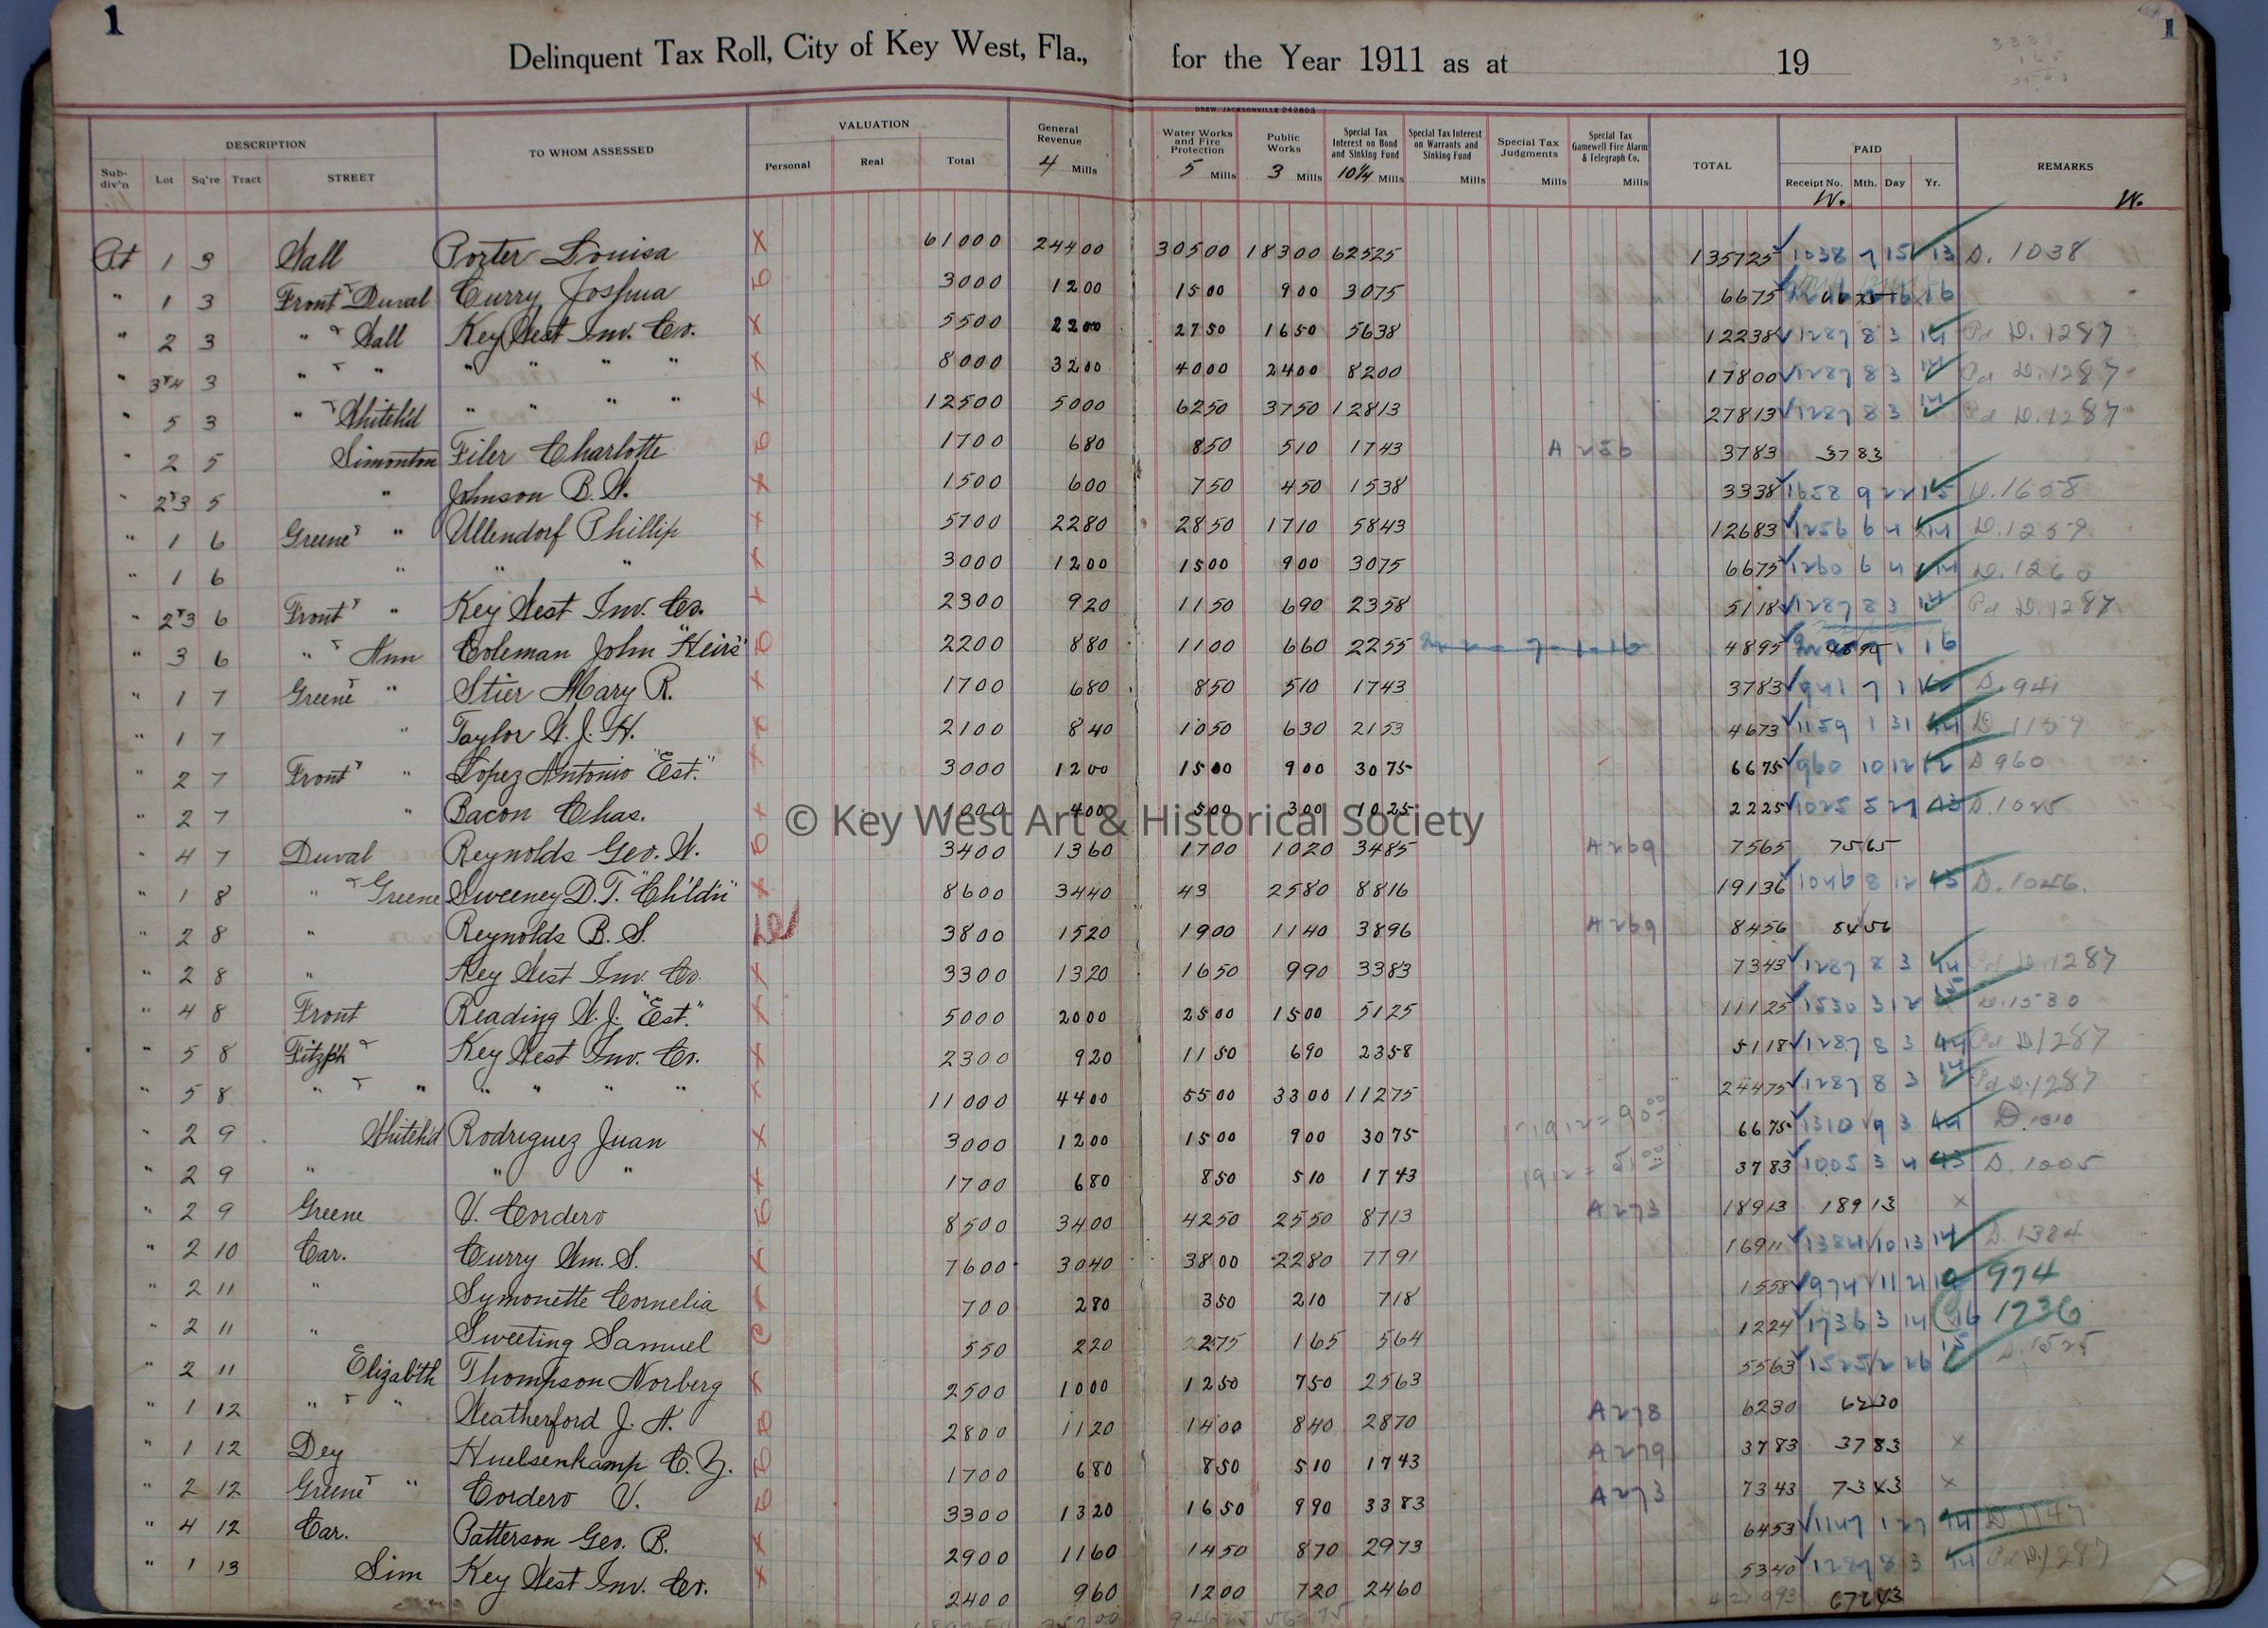 1
1
Delinquent Tax Roll, City of Key West, Fla., for the Year 1911 as at 19
DREW, JACKSONVILLE 242803
DESCRIPTION TO WHOM ASSESSED VALUATION General Revenue 4 Mills Water Works and Fire Protection 5 Mills Public Works 3 Mills Special Tax Interest on Bond and Sinking Fund 10¼ Mills Special Tax Interest on Warrants and Sinking Fund Mills Special Tax Judgments Mills Special Tax Gamewell Fire Alarm & Telegraph Co. Mills TOTAL PAID REMARKS
Sub-div'n Lot Sq're Tract STREET Personal Real Total Receipt No. Mth. Day Yr.
W. W.
Pt 1 3 Wall Porter Louisa X 61000 24400 30500 18300 62525 135725 1038 7 15 13 D. 1038
" 1 3 Front & Duval Curry Joshua 3000 1200 1500 900 3075 6675
" 2 3 " & Wall Key West Inv. Co. X 5500 2200 2750 1650 5638 12238 1287 8 3 14 Pd D. 1287
" 3&4 3 " & " " " " " X 8000 3200 4000 2400 8200 17800 1287 8 3 14 Pd D. 1287
" 5 3 " & Whiteh'd " " " " X 12500 5000 6250 3750 12813 27813 1287 8 3 14 Pd D. 1287
" 2 5 Simonton Filer Charlotte 1700 680 850 510 1743 A 256 3783 3783
" 2&3 5 " Johnson B. W. X 1500 600 750 450 1538 3338 1658 9 22 15 D. 1658
" 1 6 Greene & " Ullendorf Phillip X 5700 2280 2850 1710 5843 12683 1256 6 4 14 D. 1259
" 1 6 " " " X 3000 1200 1500 900 3075 6675 1260 6 4 14 D. 1260
" 2&3 6 Front & " Key West Inv. Co. X 2300 920 1150 690 2358 5118 1287 8 3 14 Pd D. 1287
" 3 6 " & Ann Coleman John "Heirs" 2200 880 1100 660 2255 4895 4895 1 16
" 1 7 Greene & " Stier Mary R. X 1700 680 850 510 1743 3783 941 7 1 D. 941
" 1 7 " Taylor W. J. H. X 2100 840 1050 630 2153 4673 1159 1 31 14 D 1159
" 2 7 Front & " Lopez Antonio "Est." X 3000 1200 1500 900 3075 6675 960 10 12 12 D 960
" 2 7 " Bacon Chas. X 1000 400 500 300 1025 2225 1025 5 27 13 D. 1025
" 4 7 Duval Reynolds Geo. W. 3400 1360 1700 1020 3485 A 269 7565 7565
" 1 8 " & Greene Sweeney D. T. "Child'n" X 8600 3440 43 2580 8816 19136 1046 8 12 13 D. 1046.
" 2 8 " Reynolds B. S. 3800 1520 1900 1140 3896 A 269 8456 8456
" 2 8 " Key West Inv. Co. X 3300 1320 1650 990 3383 7343 1287 8 3 14 Pd D. 1287
" 4 8 Front Reading W. J. "Est." X 5000 2000 2500 1500 5125 11125 1530 3 12 15 D. 1530
" 5 8 Fitzp'k & Key West Inv. Co. X 2300 920 1150 690 2358 5118 1287 8 3 14 Pd D 1287
" 5 8 " & " " " " " X 11000 4400 5500 3300 11275 24475 1287 8 3 14 Pd D. 1287
" 2 9 Whiteh'd Rodriguez Juan X 3000 1200 1500 900 3075 1912 = 90⁰⁰ 6675 1310 9 3 14
" 2 9 " " " X 1700 680 850 510 1743 1912 = 51⁰⁰ 3783 1005 3 4 13 D. 1005
" 2 9 Greene V. Cordero 8500 3400 4250 2550 8713 A 273 18913 18913 x
" 2 10 Car. Curry Wm. S. X 7600 3040 3800 2280 7791 16911 1384 10 13 14 D. 1384
" 2 11 " Symonette Cornelia X 700 280 350 210 718 1558 974 11 21 12 974
" 2 11 " Sweeting Samuel 550 220 275 165 564 1224 1736 3 14 16 1736
" 2 11 Elizab'th Thompson Norberg X 2500 1000 1250 750 2563 5563 1525 2 26 15 D. 1525
" 1 12 " & " Weatherford J. A. 2800 1120 1400 840 2870 A 278 6230 6230
" 1 12 Dey Huelsenkamp C. Z. 1700 680 850 510 1743 A 279 3783 3783 x
" 2 12 Greene & " Cordero V. 3300 1320 1650 990 3383 A 273 7343 7343 x
" 4 12 Car. Patterson Geo. B. X 2900 1160 1450 870 2973 6453 1147 1 27 14 D. 1147
" 1 13 Sim Key West Inv. Co. X 2400 960 1200 720 2460 5340 1287 8 3 14 Pd D. 1287
67243
© Key West Art & Historical Society